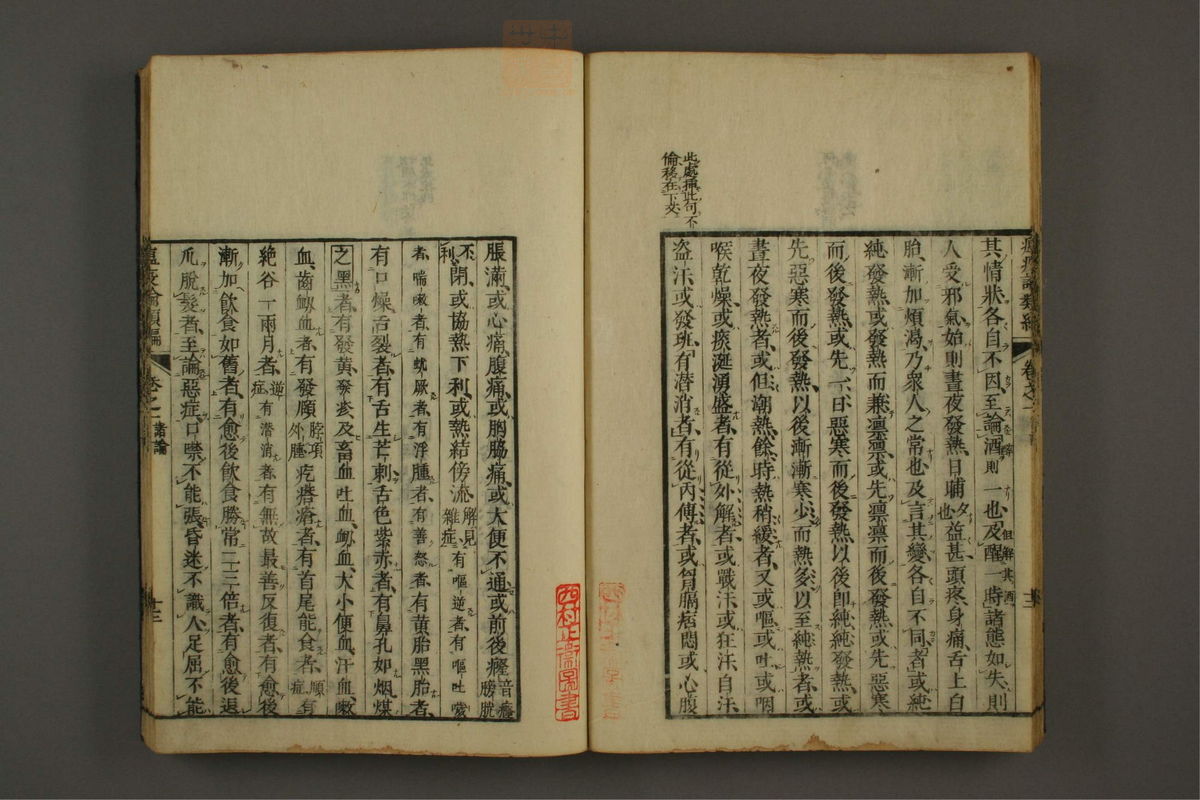 其情狀各自不因至論酒則一也及醒一時諸態如失則
但解其酒
人受邪氣始則晝夜發熱日晡夕也益甚頭疼身痛舌上白
胎漸加煩渴乃衆人之常也及言其變各自不同者或純
純發熱或發熱而兼凛凛或先凛凛而後發熱或先惡寒
而後發熱或先一日惡寒而後發熱以後即純純發熱或
先惡寒而後發熱以後漸漸寒少而熱多以至純熱者或
晝夜發熱者或但潮熱餘時熱稍緩者又或嘔或吐或咽
喉乾燥或痰涎湧盛者有從外解者或戰汗或狂汗自汗
盗汗或發斑有潜消者有從内傳者或胷膈痞悶或心腹
此處挿此句不
倫移在下文
脹滿或心痛腹痛或胸脇痛或大便不通或前後癃音癃膀胱
不利閉或協熱下利或熱結傍流解見雜症有嘔逆者有嘔吐噦
者喘嗽者有蚘厥者有浮腫者有善怒者有黄胎黑胎者
有口燥舌裂者有舌生芒刺舌色紫赤者有鼻孔如烟煤
之黑者有發黄發疹及畜血吐血衄血大小便血汗血嗽
血齒衄血者有發頤脖項外腫疙瘩瘡者有首尾能食者順症有
絶谷一兩月者逆症有潜消者有無故最善反復者有愈後
漸加飲食如舊者有愈後飲食勝常二三倍者有愈後退
爪脫髮者至論惡症口噤不能張昏迷不識人足屈不能
卷之一
諸論
十三
四村正齋圖書